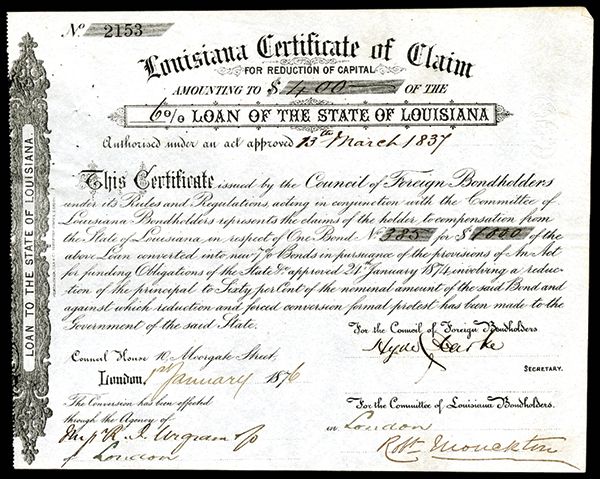 No. 2153
Louisiana Certificate of Claim
FOR REDUCTION OF CAPITAL
AMOUNTING TO $ 400 OF THE
6% LOAN OF THE STATE OF LOUISIANA
Authorised under an act approved 13th March 1837
This Certificate issued by the Council of Foreign Bondholders
under its Rules and Regulations, acting in conjunction with the Committee of
Louisiana Bondholders represents the claims of the holder to compensation from
the State of Louisiana, in respect of One Bond No. 385 for $ 1000 of the
above Loan converted into new 7% Bonds in pursuance of the provisions of An Act
for funding Obligations of the State &c approved 24th January 1874, involving a reduc-
tion of the principal to Sixty per Cent of the nominal amount of the said Bond and
against which reduction and forced conversion formal protest has been made to the
Government of the said State.
For the Council of Foreign Bondholders
Hyde Clarke
SECRETARY.
Council House 10, Moorgate Street,
London, 1st January 1876
The Conversion has been effected
through the Agency of
of London
For the Committee of Louisiana Bondholders.
in London
Robt. Monckton
LOAN TO THE STATE OF LOUISIANA.